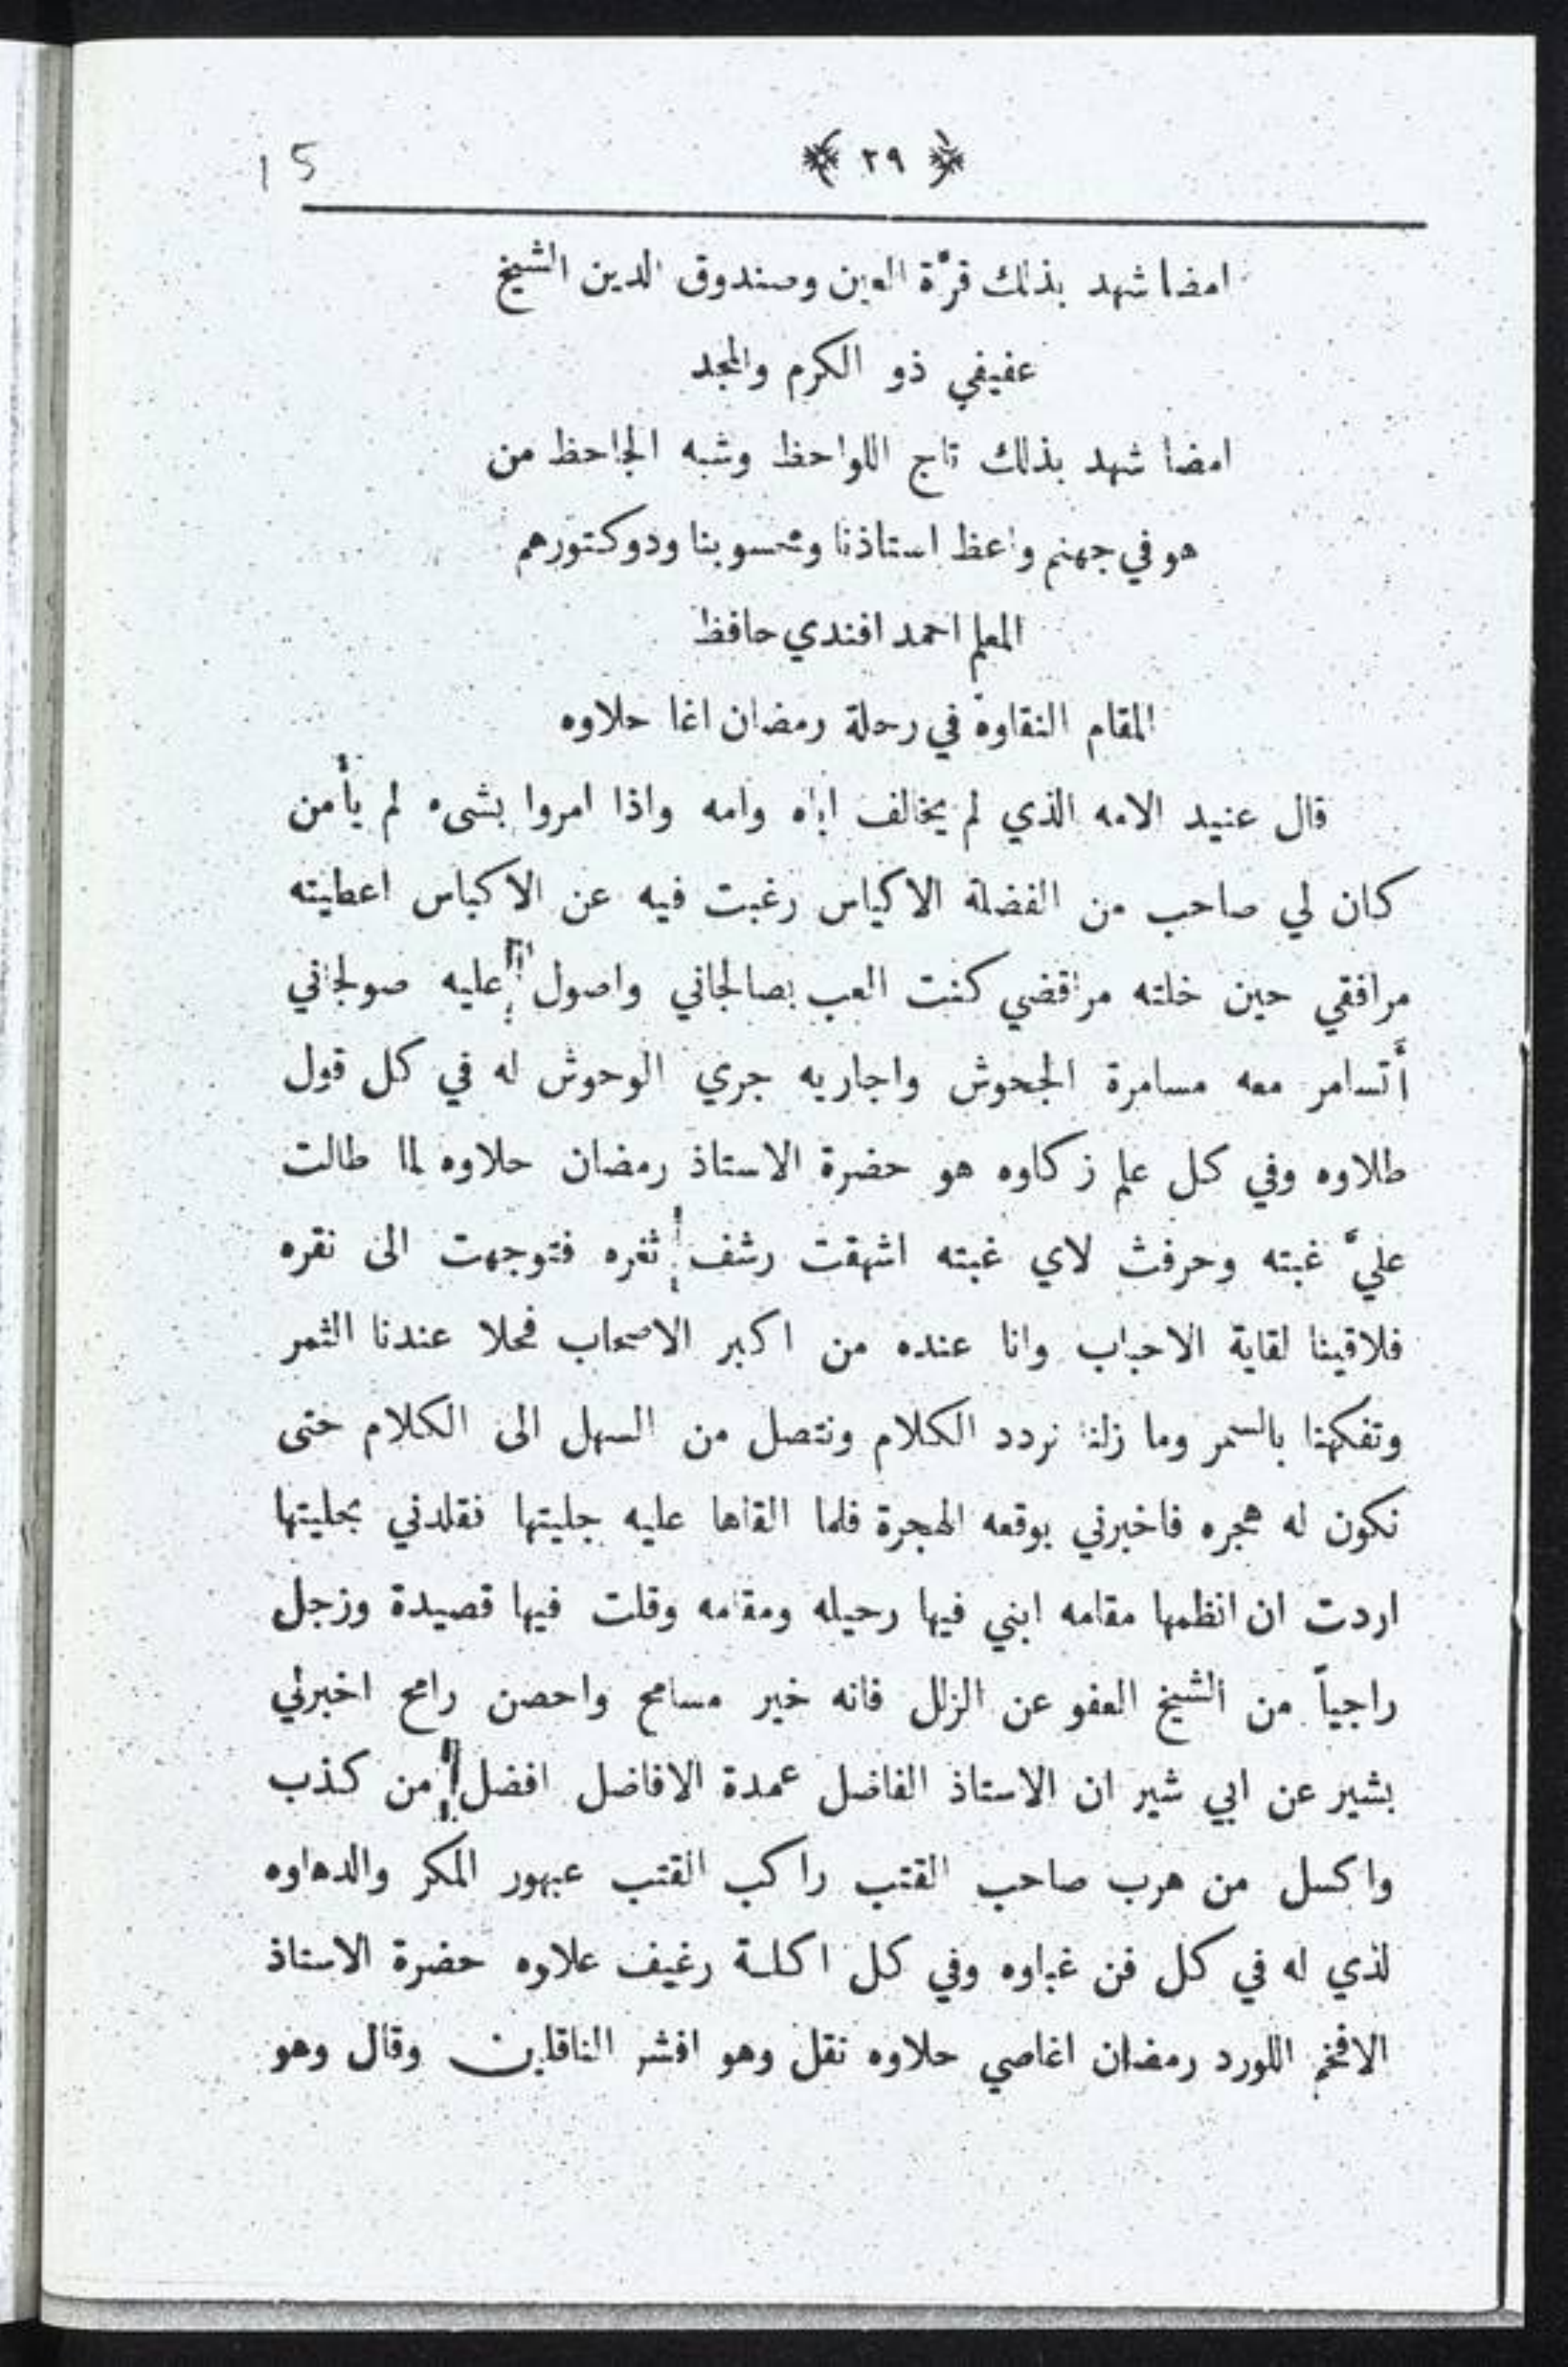 15
﴿ ٢٩ ﴾
امضا شهد بذلك قرَّة العين وصندوق الدين الشيخ
عفيفي ذو الكرم والمجد
امضا شهد بذلك تاج اللواحظ وشبه الجاحظ من
هو في جهنم واعظ استاذنا ومحسوبنا ودوكتورهم
المعلم احمد افندي حافظ
المقام النقاوة في رحلة رمضان اغا حلاوه
قال عنيد الامه الذي لم يخالف اباه وامه واذا امروا بشىء لم يأمن
كان لي صاحب من الفضلة الاكياس رغبت فيه عن الاكياس اعطيته
مرافقي حين خلته مراقضي كنت العب بصالجاني واصول عليه صولجاني
أتسامر معه مسامرة الجحوش واجاريه جري الوحوش له في كل قول
طلاوه وفي كل علم زكاوه هو حضرة الاستاذ رمضان حلاوه لما طالت
عليَّ غبته وحرفث لاي غبته اشهقت رشف ثغره فتوجهت الى نقره
فلاقينا لقاية الاحباب وانا عنده من اكبر الاصحاب فحلا عندنا الثمر
وتفكهنا بالسمر وما زلنا نردد الكلام ونتصل من السهل الى الكلام حتى
نكون له هجره فاخبرني بوقعه الهجرة فلما القاها عليه جليتها فقلدني بحليتها
اردت ان انظمها مقامه ابني فيها رحيله ومقامه وقلت فيها قصيدة وزجل
راجياً من الشيخ العفو عن الزلل فانه خير مسامح واحصن رامح اخبرني
بشير عن ابي شير ان الاستاذ الفاضل عمدة الافاضل افضل من كذب
واكسل من هرب صاحب القتب راكب القتب عبهور المكر والدهاوه
لذي له في كل فن غباوه وفي كل اكلة رغيف علاوه حضرة الاستاذ
الافخم اللورد رمضان اغاصي حلاوه نقل وهو افشر الناقلين وقال وهو